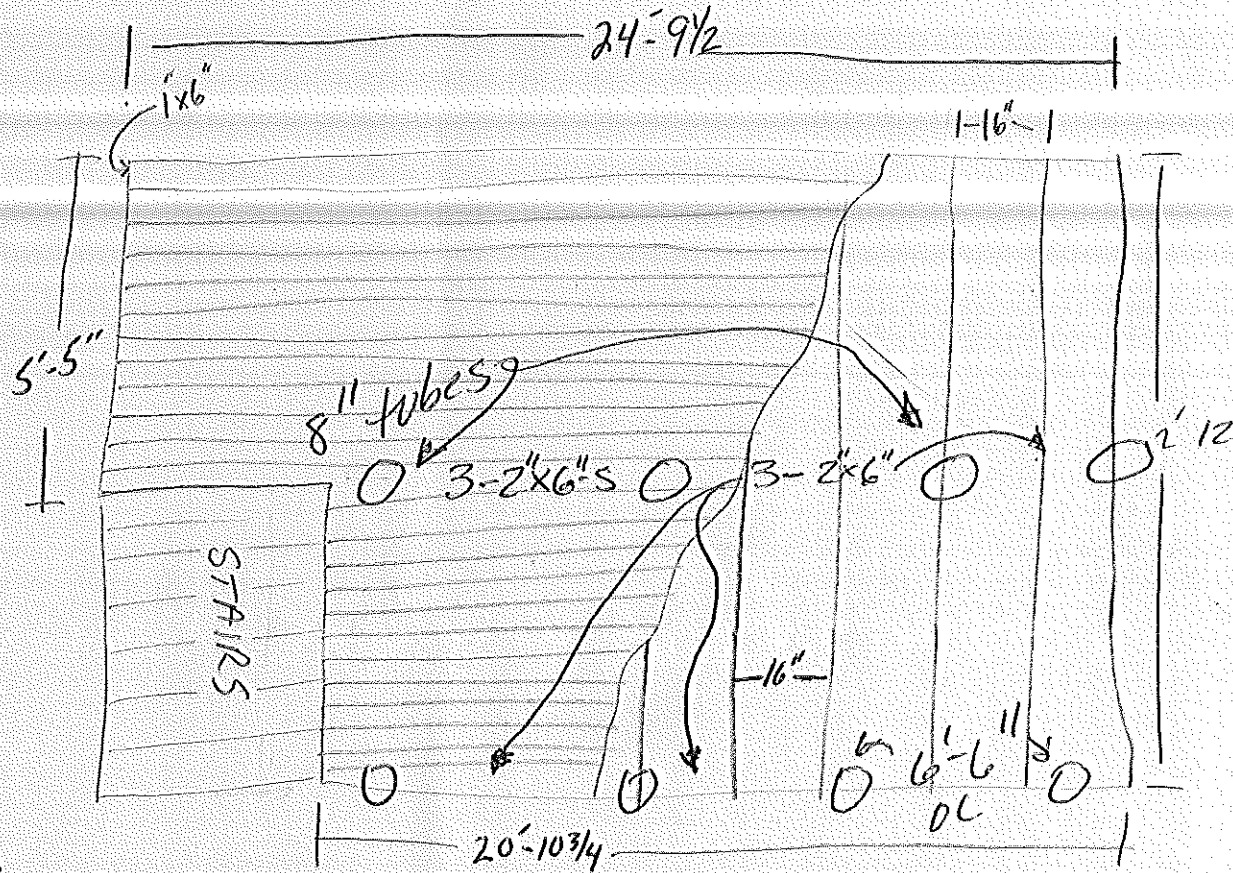 24'-9 1/2
1x6"
1-16"-1
5'-5"
8" tubes
3-2"x6"-s
3-2"x6"
12
STAIRS
16"
6'-6"
OC
20'-10 3/4